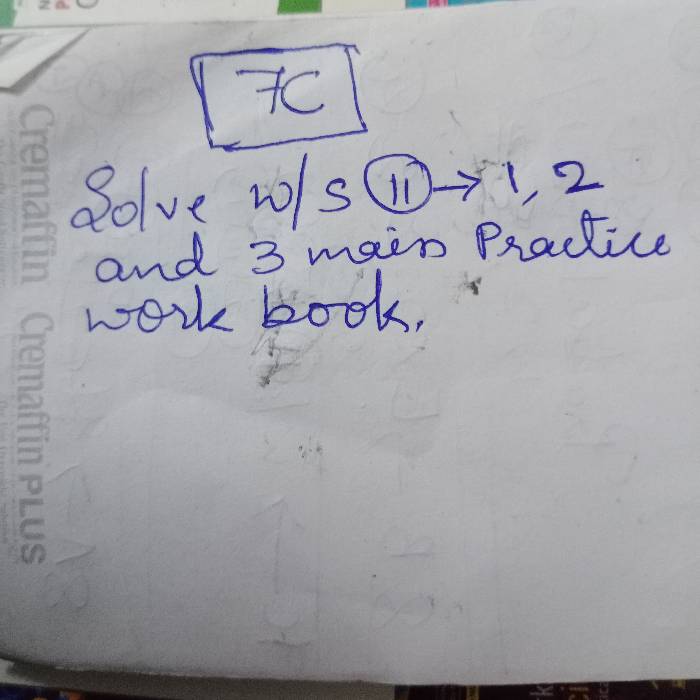 7C
Solve w/s 11 → 1, 2
and 3 main Practice
work book.
Cremaffin Cremaffin PLUS